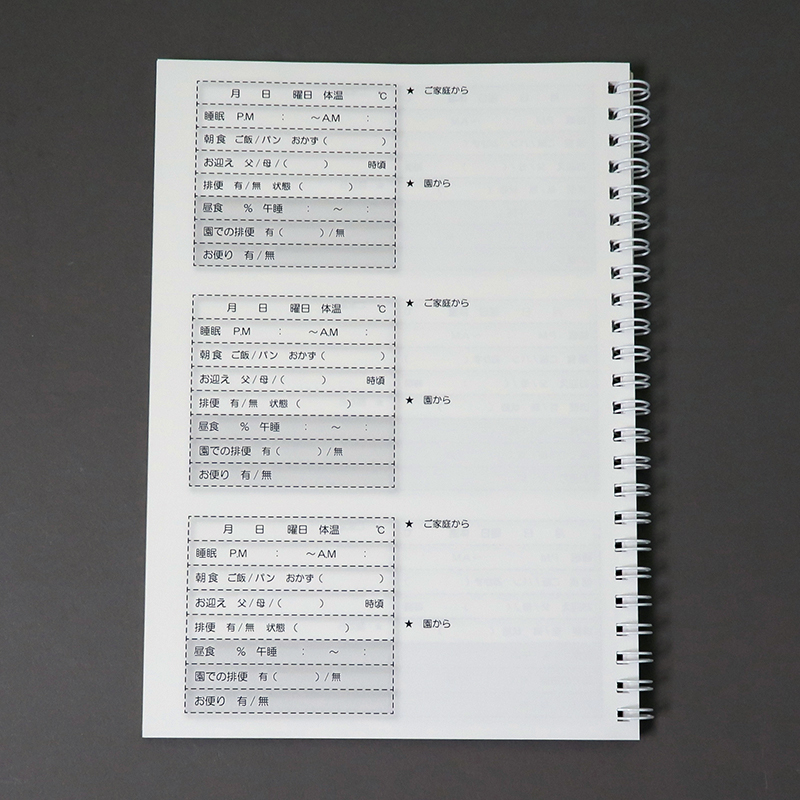 月 日 曜日 体温 ℃
睡眠 P.M : ～A.M :
朝食 ご飯/パン おかず( )
お迎え 父/母/( ) 時頃
排便 有/無 状態( )
昼食 % 午睡 : ～ :
園での排便 有( )/無
お便り 有/無
★ ご家庭から
★ 園から
月 日 曜日 体温 ℃
睡眠 P.M : ～A.M :
朝食 ご飯/パン おかず( )
お迎え 父/母/( ) 時頃
排便 有/無 状態( )
昼食 % 午睡 : ～ :
園での排便 有( )/無
お便り 有/無
★ ご家庭から
★ 園から
月 日 曜日 体温 ℃
睡眠 P.M : ～A.M :
朝食 ご飯/パン おかず( )
お迎え 父/母/( ) 時頃
排便 有/無 状態( )
昼食 % 午睡 : ～ :
園での排便 有( )/無
お便り 有/無
★ ご家庭から
★ 園から